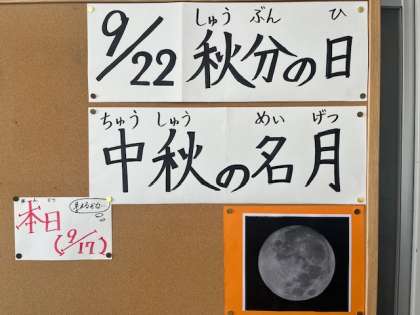 しゅう ぶん ひ
9/22 秋分の日
ちゅう しゅう めい げつ
中秋の名月
本日
(9/17)